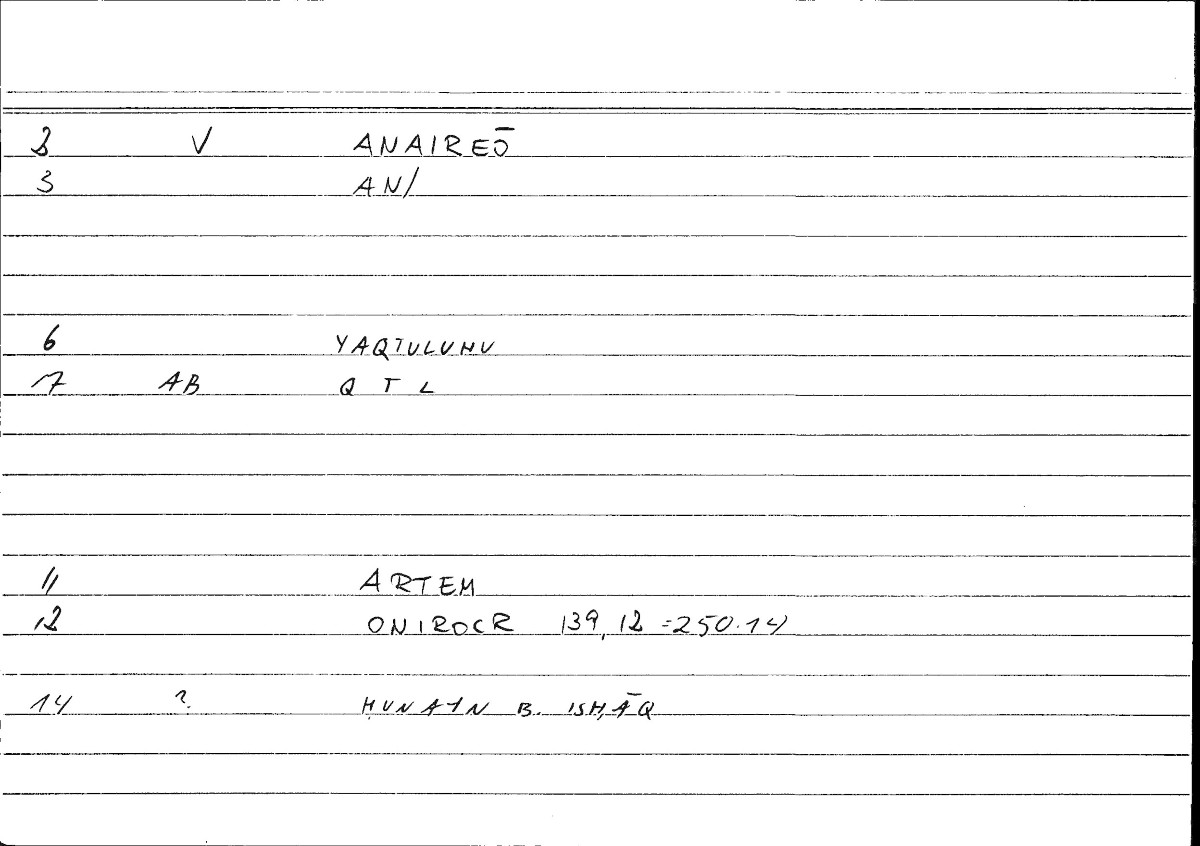 2 V ANAIREŌ
3 AN/
6 YAQTULUHU
17 AB Q T L
11 ARTEM
12 ONIROCR 139,12 =250.14
14 ? ḤUNAYN B. ISḤĀQ